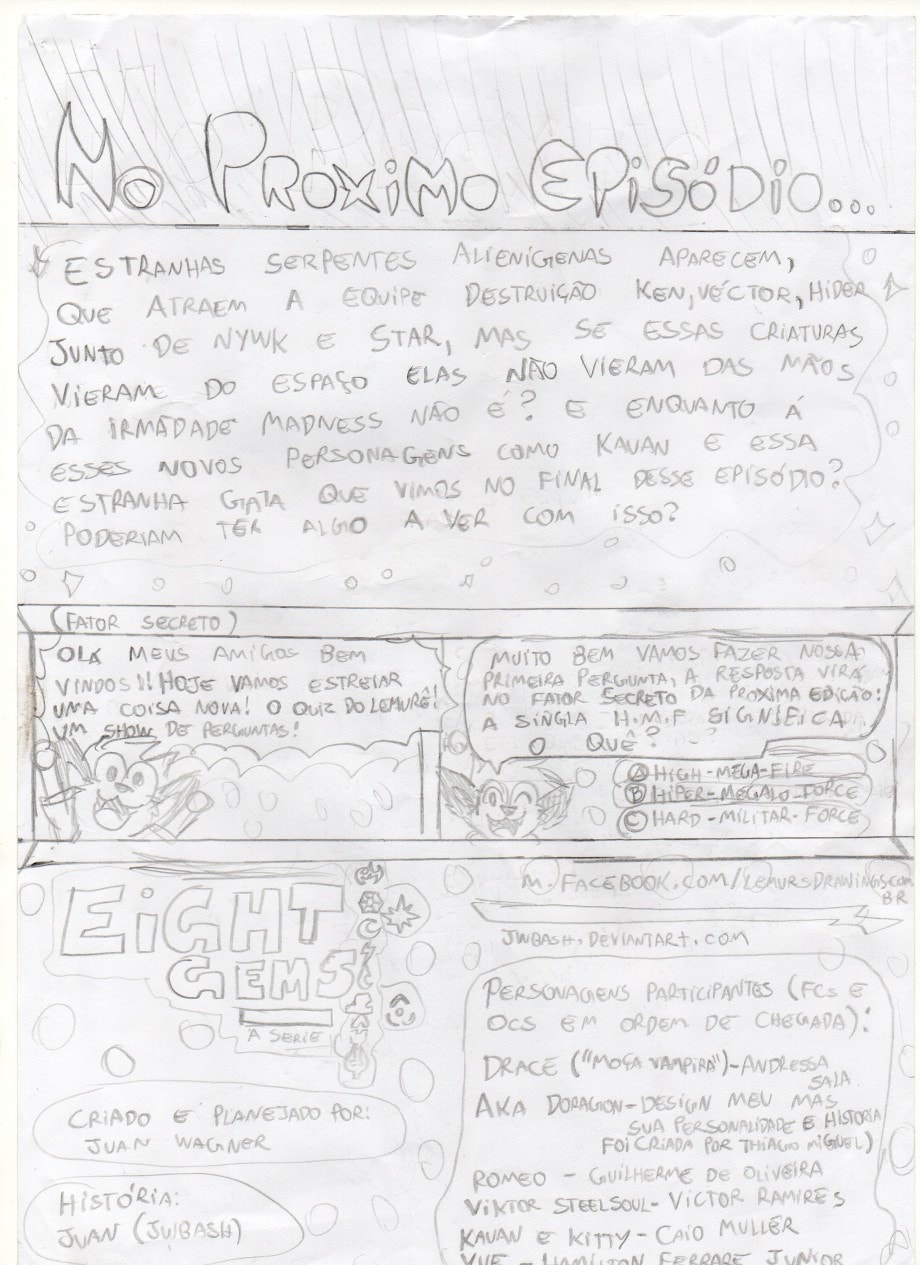 No PROXIMO EPISÓDIO...
ESTRANHAS SERPENTES ALIENÍGENAS APARECEM,
QUE ATRAEM A EQUIPE DESTRUIÇÃO KEN, VÉCTOR, HIDER
JUNTO DE NYWK E STAR, MAS SE ESSAS CRIATURAS
VIERAM DO ESPAÇO ELAS NÃO VIERAM DAS MÃOS
DA IRMADADE MADNESS NÃO É? E ENQUANTO Á
ESSES NOVOS PERSONAGENS COMO KAUAN E ESSA
ESTRANHA GATA QUE VIMOS NO FINAL DESSE EPISÓDIO?
PODERIAM TER ALGO A VER COM ISSO?
(FATOR SECRETO)
OLÁ MEUS AMIGOS BEM
VINDOS!! HOJE VAMOS ESTREIAR
UMA COISA NOVA! O QUIZ DO LEMURÊ!
UM SHOW DE PERGUNTAS!
MUITO BEM VAMOS FAZER NOSSA
PRIMEIRA PERGUNTA, A RESPOSTA VIRÁ
NO FATOR SECRETO DA PROXIMA EDIÇÃO:
A SINGLA H.M.F SIGNIFICA
O QUÊ?
A HIGH-MEGA-FIRE
B HIPER-MEGALO-FORCE
C HARD-MILITAR-FORCE
EIGHT
GEMS
A SERIE
CRIADO E PLANEJADO POR:
JUAN WAGNER
HISTÓRIA:
JUAN (JWBASH)
M.FACEBOOK.COM/LEMURSDRAWINGS.COM
BR
JWBASH.DEVIANTART.COM
PERSONAGENS PARTICIPANTES (FCS E
OCS EM ORDEM DE CHEGADA):
DRACE ("MOÇA VAMPIRA")-ANDRESSA
SALA
AKA DORAGION-DESIGN MEU MAS
SUA PERSONALIDADE E HISTORIA
FOI CRIADA POR THIAGO MIGUEL)
ROMEO - GUILHERME DE OLIVEIRA
VIKTOR STEELSOUL-VICTOR RAMIRES
KAUAN E KITTY-CAIO MULLER
YUE - HAMILTON FERRARE JUNIOR